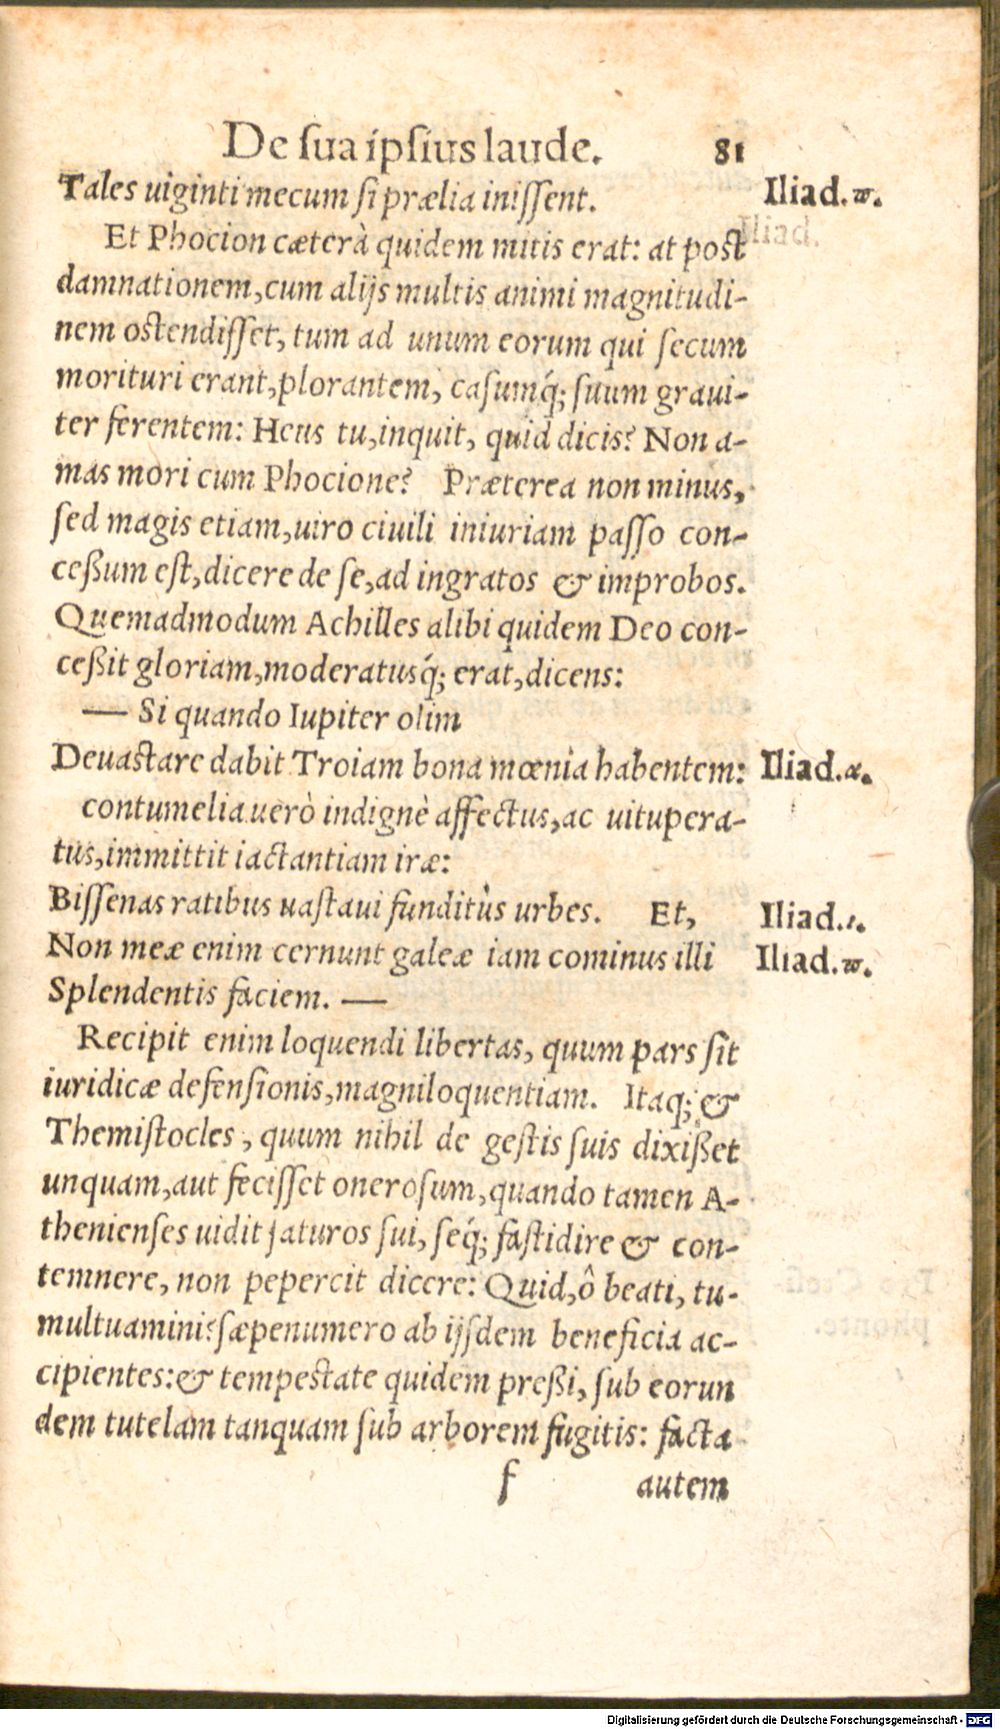 De ſua ipſius laude. 81
Tales uiginti mecum ſi prælia iniſſent. Iliad.ϖ.
Et Phocion cæterà quidem mitis erat: at post
damnationem, cum alijs multis animi magnitudi-
nem ostendiſſet, tum ad unum eorum qui ſecum
morituri erant, plorantem, caſumq́; ſuum graui-
ter ferentem: Heus tu, inquit, quid dicis? Non a-
mas mori cum Phocione? Præterea non minus,
ſed magis etiam, uiro ciuili iniuriam paſſo con-
ceßum eſt, dicere de ſe, ad ingratos & improbos.
Quemadmodum Achilles alibi quidem Deo con-
ceßit gloriam, moderatusq́; erat, dicens:
— Si quando Iupiter olim
Deuastare dabit Troiam bona mœnia habentem: Iliad.α.
contumelia uerò indignè affectus, ac uitupera-
tus, immittit iactantiam iræ:
Biſſenas ratibus uaſtaui funditùs urbes. Et, Iliad.ι.
Non meæ enim cernunt galeæ iam cominus illi Iliad.ϖ.
Splendentis faciem. —
Recipit enim loquendi libertas, quum pars ſit
iuridicæ defenſionis, magniloquentiam. Itaq; &
Themiſtocles, quum nihil de geſtis ſuis dixißet
unquam, aut feciſſet oneroſum, quando tamen A-
thenienſes uidit ſaturos ſui, ſeq́; faſtidire & con-
temnere, non pepercit dicere: Quid, ô beati, tu-
multuamini? ſæpenumero ab ijſdem beneficia ac-
cipientes: & tempestate quidem preßi, ſub eorun
dem tutelam tanquam ſub arborem fugitis: facta
f autem
Digitalisierung gefördert durch die Deutsche Forschungsgemeinschaft - DFG